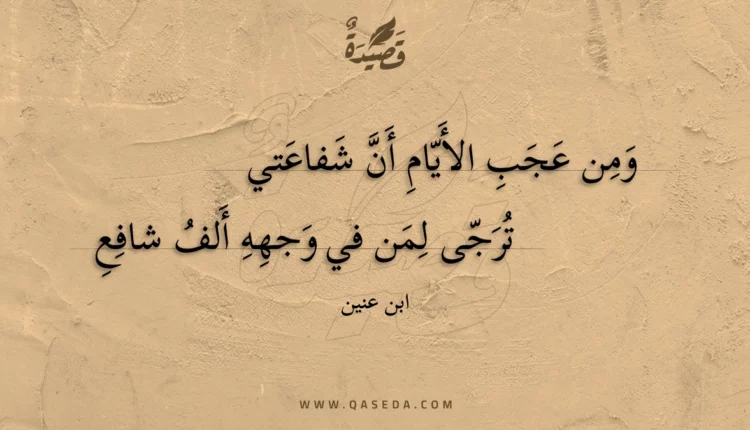 قَصِيْدَةٌ
وَمِن عَجَبِ الأَيّامِ أَنَّ شَفاعَتي
تُرَجّى لِمَن في وَجهِهِ أَلفُ شافِعِ
ابن عنين
WWW.QASEDA.COM